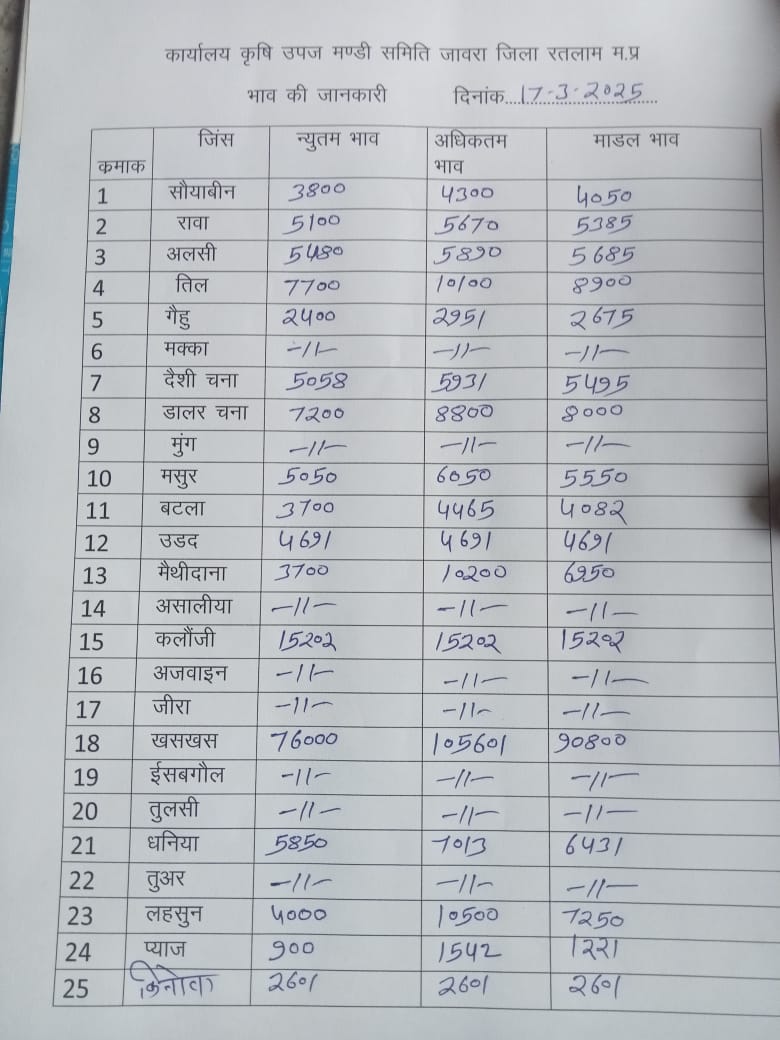 कार्यालय कृषि उपज मण्डी समिति जावरा जिला रतलाम म.प्र
भाव की जानकारी दिनांक....17-3-2025
कमाक जिंस न्युतम भाव अधिकतम भाव माडल भाव
1 सौयाबीन 3800 4300 4050
2 रावा 5100 5670 5385
3 अलसी 5480 5890 5685
4 तिल 7700 10100 8900
5 गैहु 2400 2951 2675
6 मक्का -11- -11- -11-
7 दैशी चना 5058 5931 5495
8 डालर चना 7200 8800 8000
9 मुंग -11- -11- -11-
10 मसुर 5050 6050 5550
11 बटला 3700 4465 4082
12 उडद 4691 4691 4691
13 मैथीदाना 3700 10200 6950
14 असालीया -11- -11- -11-
15 कलौंजी 15202 15202 15202
16 अजवाइन -11- -11- -11-
17 जीरा -11- -11- -11-
18 खसखस 76000 105601 90800
19 ईसबगौल -11- -11- -11-
20 तुलसी -11- -11- -11-
21 धनिया 5850 7013 6431
22 तुअर -11- -11- -11-
23 लहसुन 4000 10500 7250
24 प्याज 900 1542 1221
25 2601 2601 2601